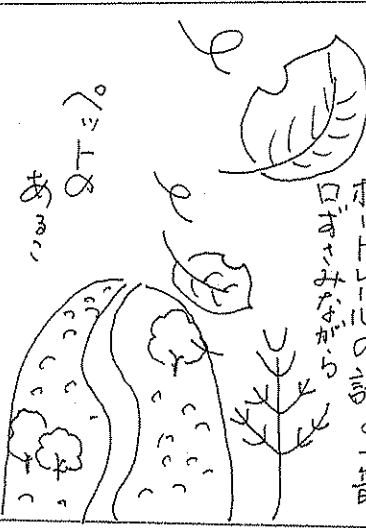 ボートレールの詩の一節
口ずさみながら
ペットの
あるこ